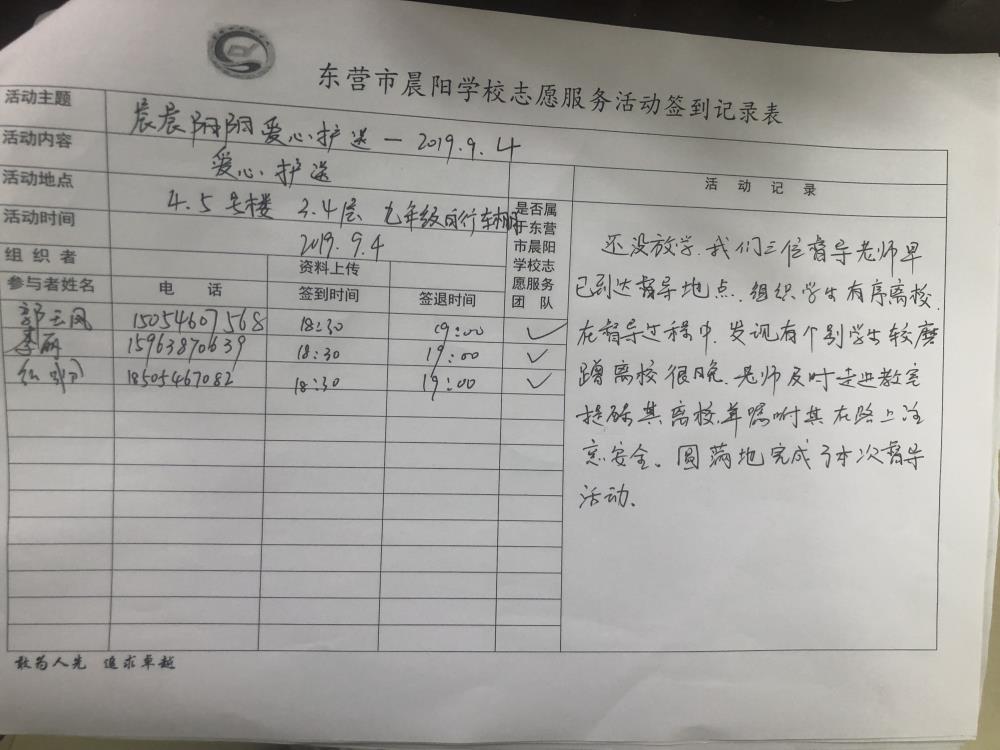 东营市晨阳学校志愿服务活动签到记录表
活动主题 晨晨阳阳爱心护送—2019.9.4
活动内容 爱心护送
活动地点 4.5号楼 3.4层 九年级自行车棚
活动时间 2019.9.4
组织者 资料上传
参与者姓名 电话 签到时间 签退时间
是否属
于东营
市晨阳
学校志
愿服务
团队
郭云凤 15054607568 18:30 19:00 ✓
李丽 15963870639 18:30 19:00 ✓
18505467082 18:30 19:00 ✓
活动记录
还没放学,我们三位督导老师早
已到达督导地点,组织学生有序离校.
在督导过程中,发现有个别学生较磨
蹭离校很晚.老师及时走进教室
提醒其离校,并嘱咐其在路上注
意安全。圆满地完成了本次督导
活动.
敢为人先 追求卓越